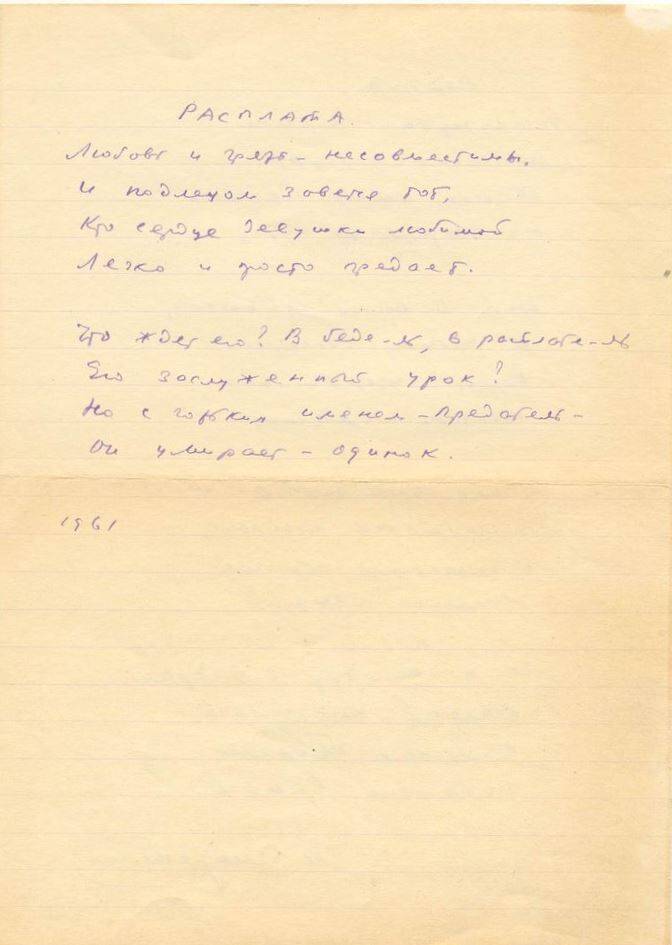 РАСПЛАТА.
Любовь и грязь – несовместимы,
И подлецом зовется тот,
Кто сердце девушки любимой
Легко и просто предает.
Что ждет его? В беде-ль, в расплате-ль
Его заслуженный урок?
Но с горьким именем – предатель –
Он умирает – одинок.
1961